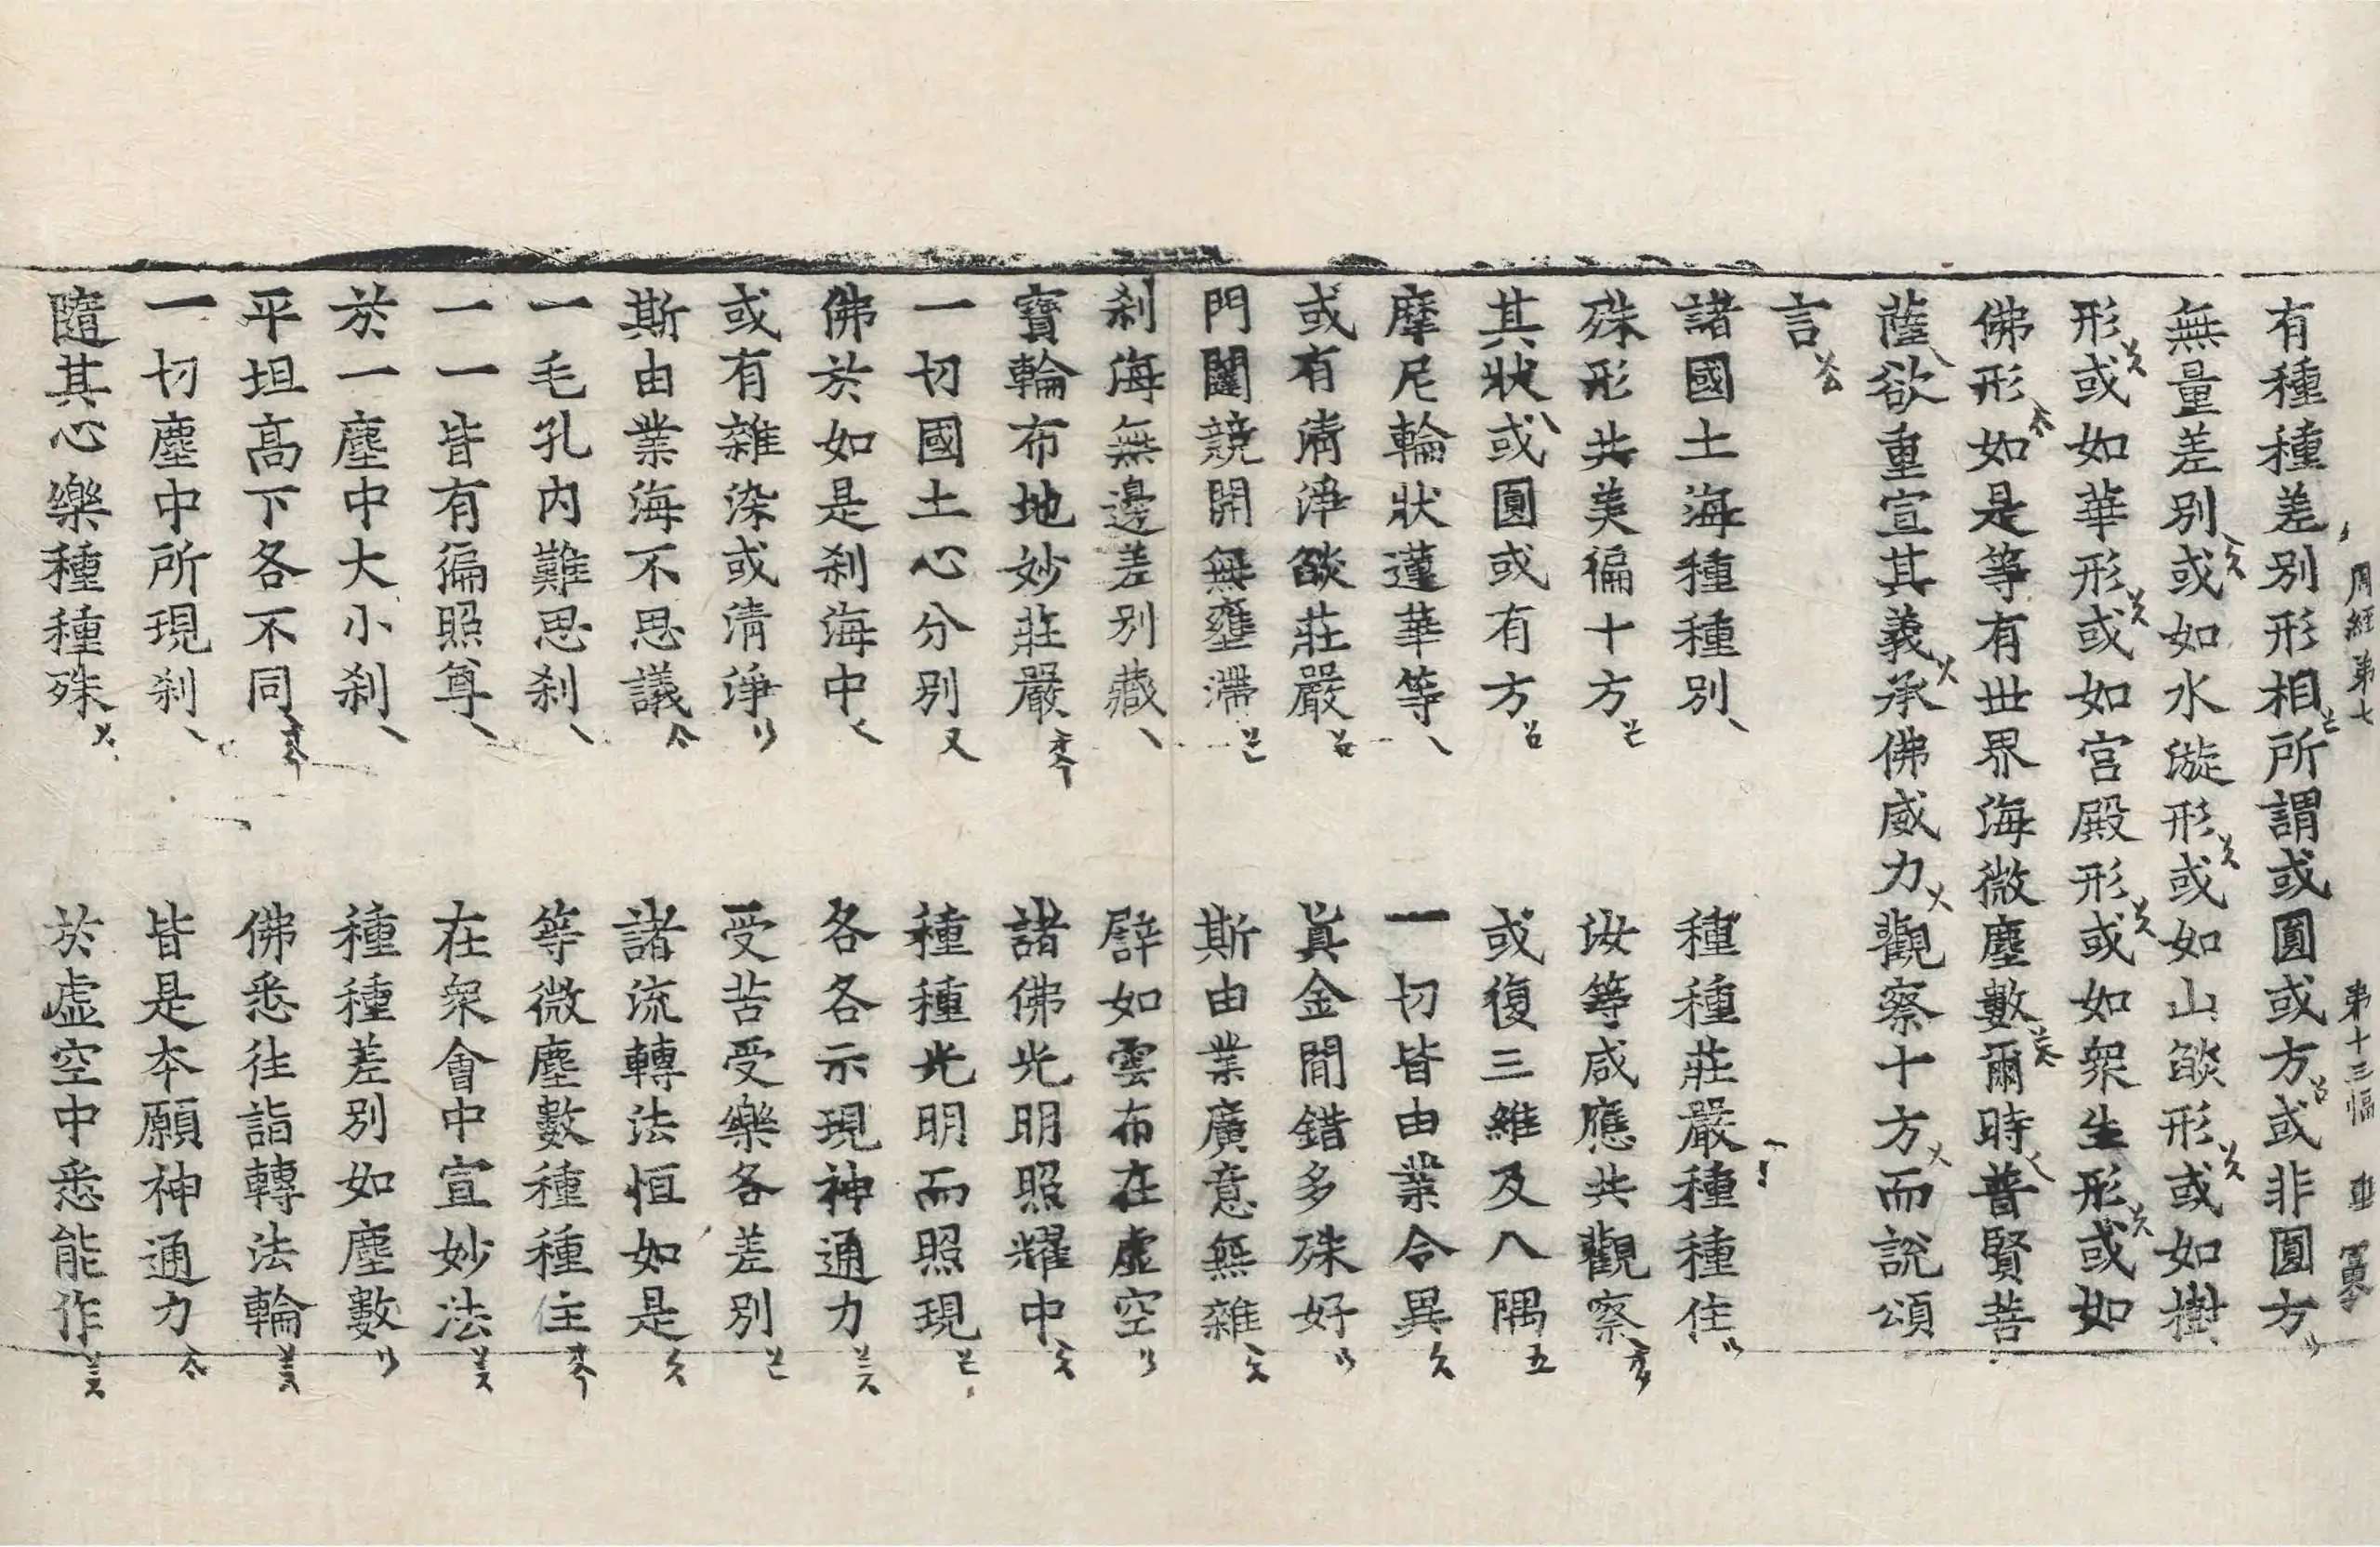 周經第七 第十三幅
有種種差別形相所謂或圓或方或非圓方
無量差別或如水漩形或如山𦦨形或如樹
形或如華形或如宮殿形或如衆生形或如
佛形如是等有世界海微塵數爾時普賢菩
薩欲重宣其義承佛威力觀察十方而說頌
言
諸國土海種種別 種種莊嚴種種住
殊形共美徧十方 汝等咸應共觀察
其狀或圓或有方 或復三維及八隅
摩尼輪狀蓮華等 一切皆由業令異
或有清淨𦦨莊嚴 眞金間錯多殊好
門闥競開無壅滯 斯由業廣意無雜
刹海無邊差別藏 譬如雲布在虛空
寶輪布地妙莊嚴 諸佛光明照耀中
一切國土心分別 種種光明而照現
佛於如是刹海中 各各示現神通力
或有雜染或清淨 受苦受樂各差別
斯由業海不思議 諸流轉法恒如是
一毛孔內難思刹 等微塵數種種住
一一皆有徧照尊 在衆會中宣妙法
於一塵中大小刹 種種差別如塵數
平坦高下各不同 佛悉往詣轉法輪
一切塵中所現刹 皆是本願神通力
隨其心樂種種殊 於虛空中悉能作